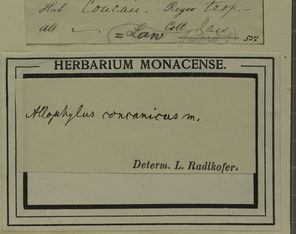 Hab. Concan. Regio trop.
alt. Coll. Law
= Law
HERBARIUM MONACENSE.
Allophylus concanicus m.
Determ. L. Radlkofer.